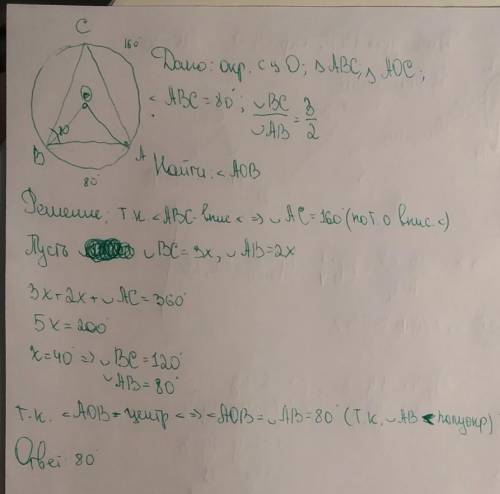 C
160°
Дано: окр. с ц O; △ ABC, △ AOC;
< ABC = 80°; ◡BC/◡AB = 3/2
O
80
B
A
80°
Найти: < AOB
Решение: т.к. <ABC-впис < ⇒ ◡AC=160° (по т. о впис. <)
Пусть ◡BC=3x, ◡AB=2x
3x+2x+◡AC=360°
5x=200°
x=40° ⇒ ◡BC=120°
◡AB=80°
т.к. <AOB = центр < ⇒ <AOB=◡AB=80° (т.к. ◡AB < полуокр)
Ответ 80°